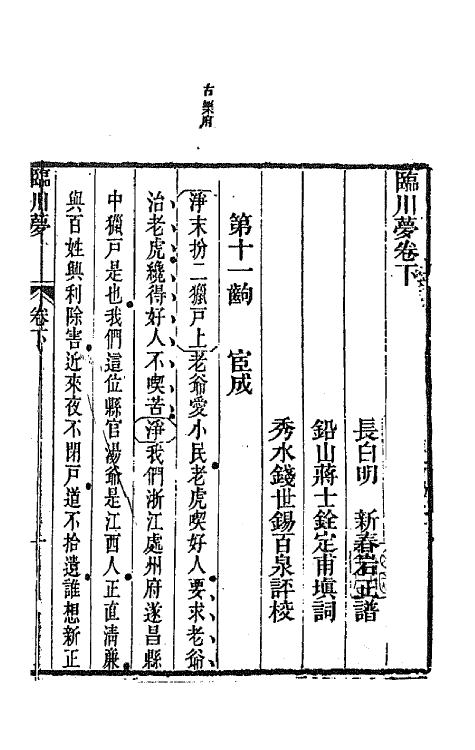 古樂府
臨川夢卷下
長白明　新春岩正譜
鉛山蔣士銓定甫塡詞
秀水錢世錫百泉評校
第十一齣　宦成
淨末扮二獵戶上老爺愛小民老虎喫好人要求老爺
治老虎纔得好人不喫苦淨我們浙江處州府遂昌縣
中獵戶是也我們這位縣官湯爺是江西人正直清廉
與百姓興利除害近來夜不閉戶道不拾遺誰想新正
臨川夢　卷下　一